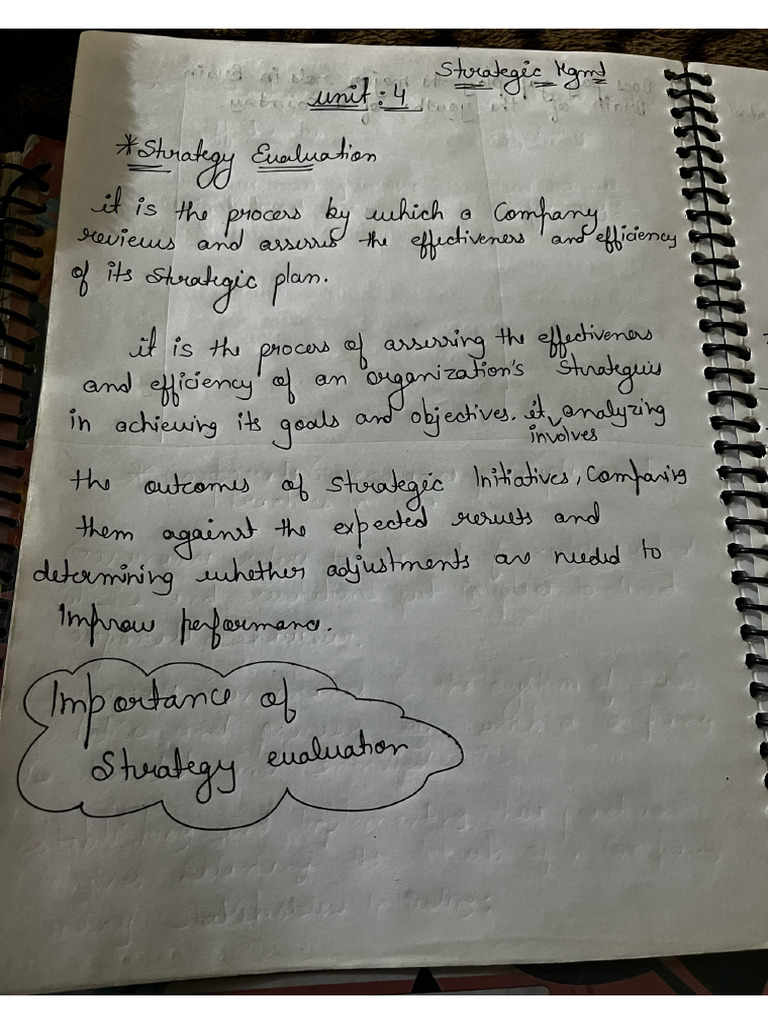 Strategic Mgmt
unit: 4
*Strategy Evaluation
it is the process by which a Company
reviews and assesses the effectiveness and efficiency
of its strategic plan.
it is the process of assessing the effectiveness
and efficiency of an organization's strategies
in achieving its goals and objectives. it analyzing
involves
the outcomes of strategic Initiatives, Comparing
them against the expected results and
determining whether adjustments are needed to
Improve performance.
Importance of
Strategy evaluation